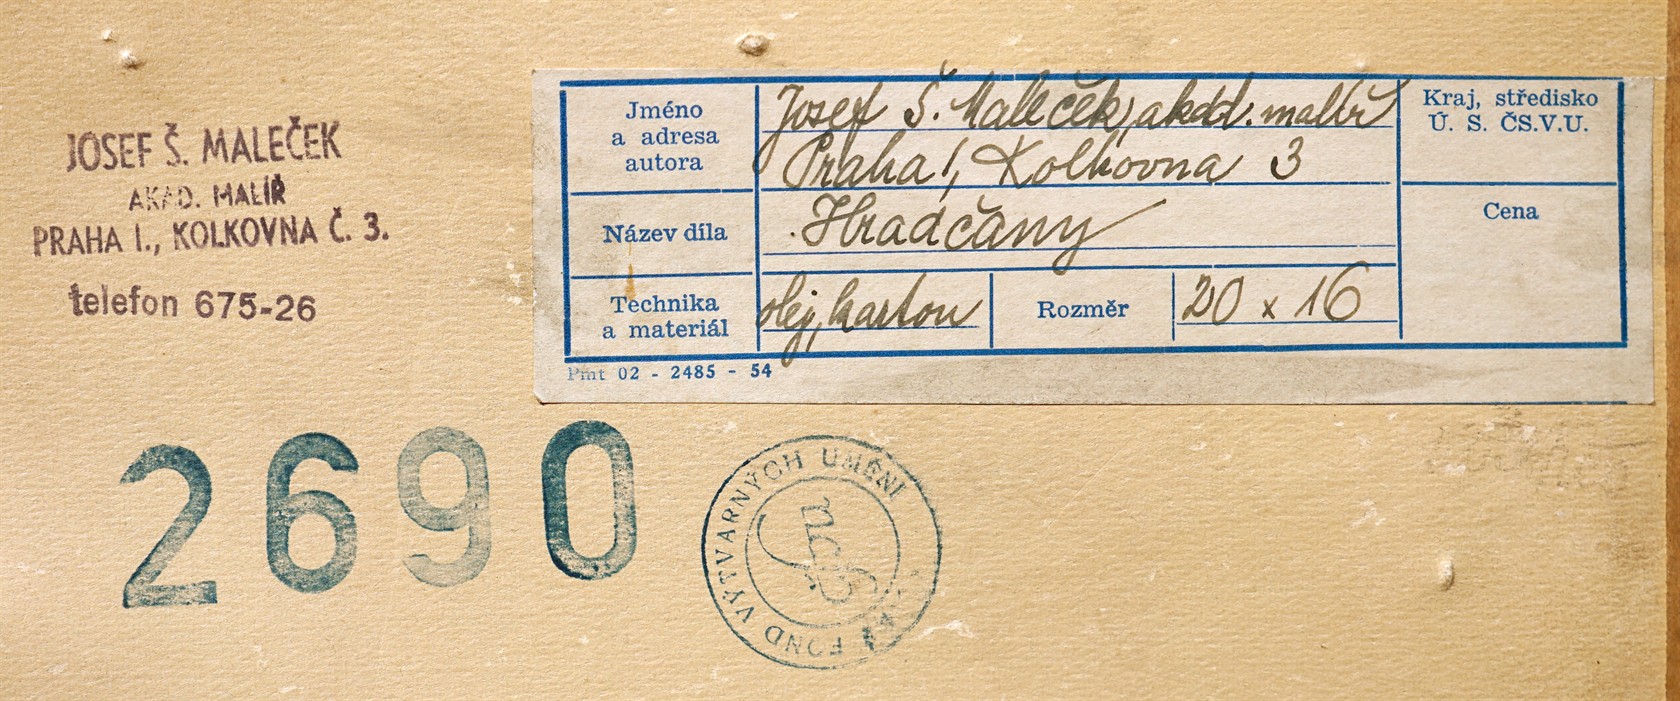 JOSEF Š. MALEČEK
AKAD. MALÍŘ
PRAHA I., KOLKOVNA Č. 3.
telefon 675-26
Jméno
a adresa
autora
Josef Š. Maleček, akad. malíř
Praha 1, Kolkovna 3
Kraj, středisko
Ú. S. ČS.V.U.
Název díla
Hradčany
Cena
Technika
a materiál
olej, karton
Rozměr
20 x 16
Pmt 02 - 2485 - 54
2690
FOND VÝTVARNÝCH UMĚNÍ